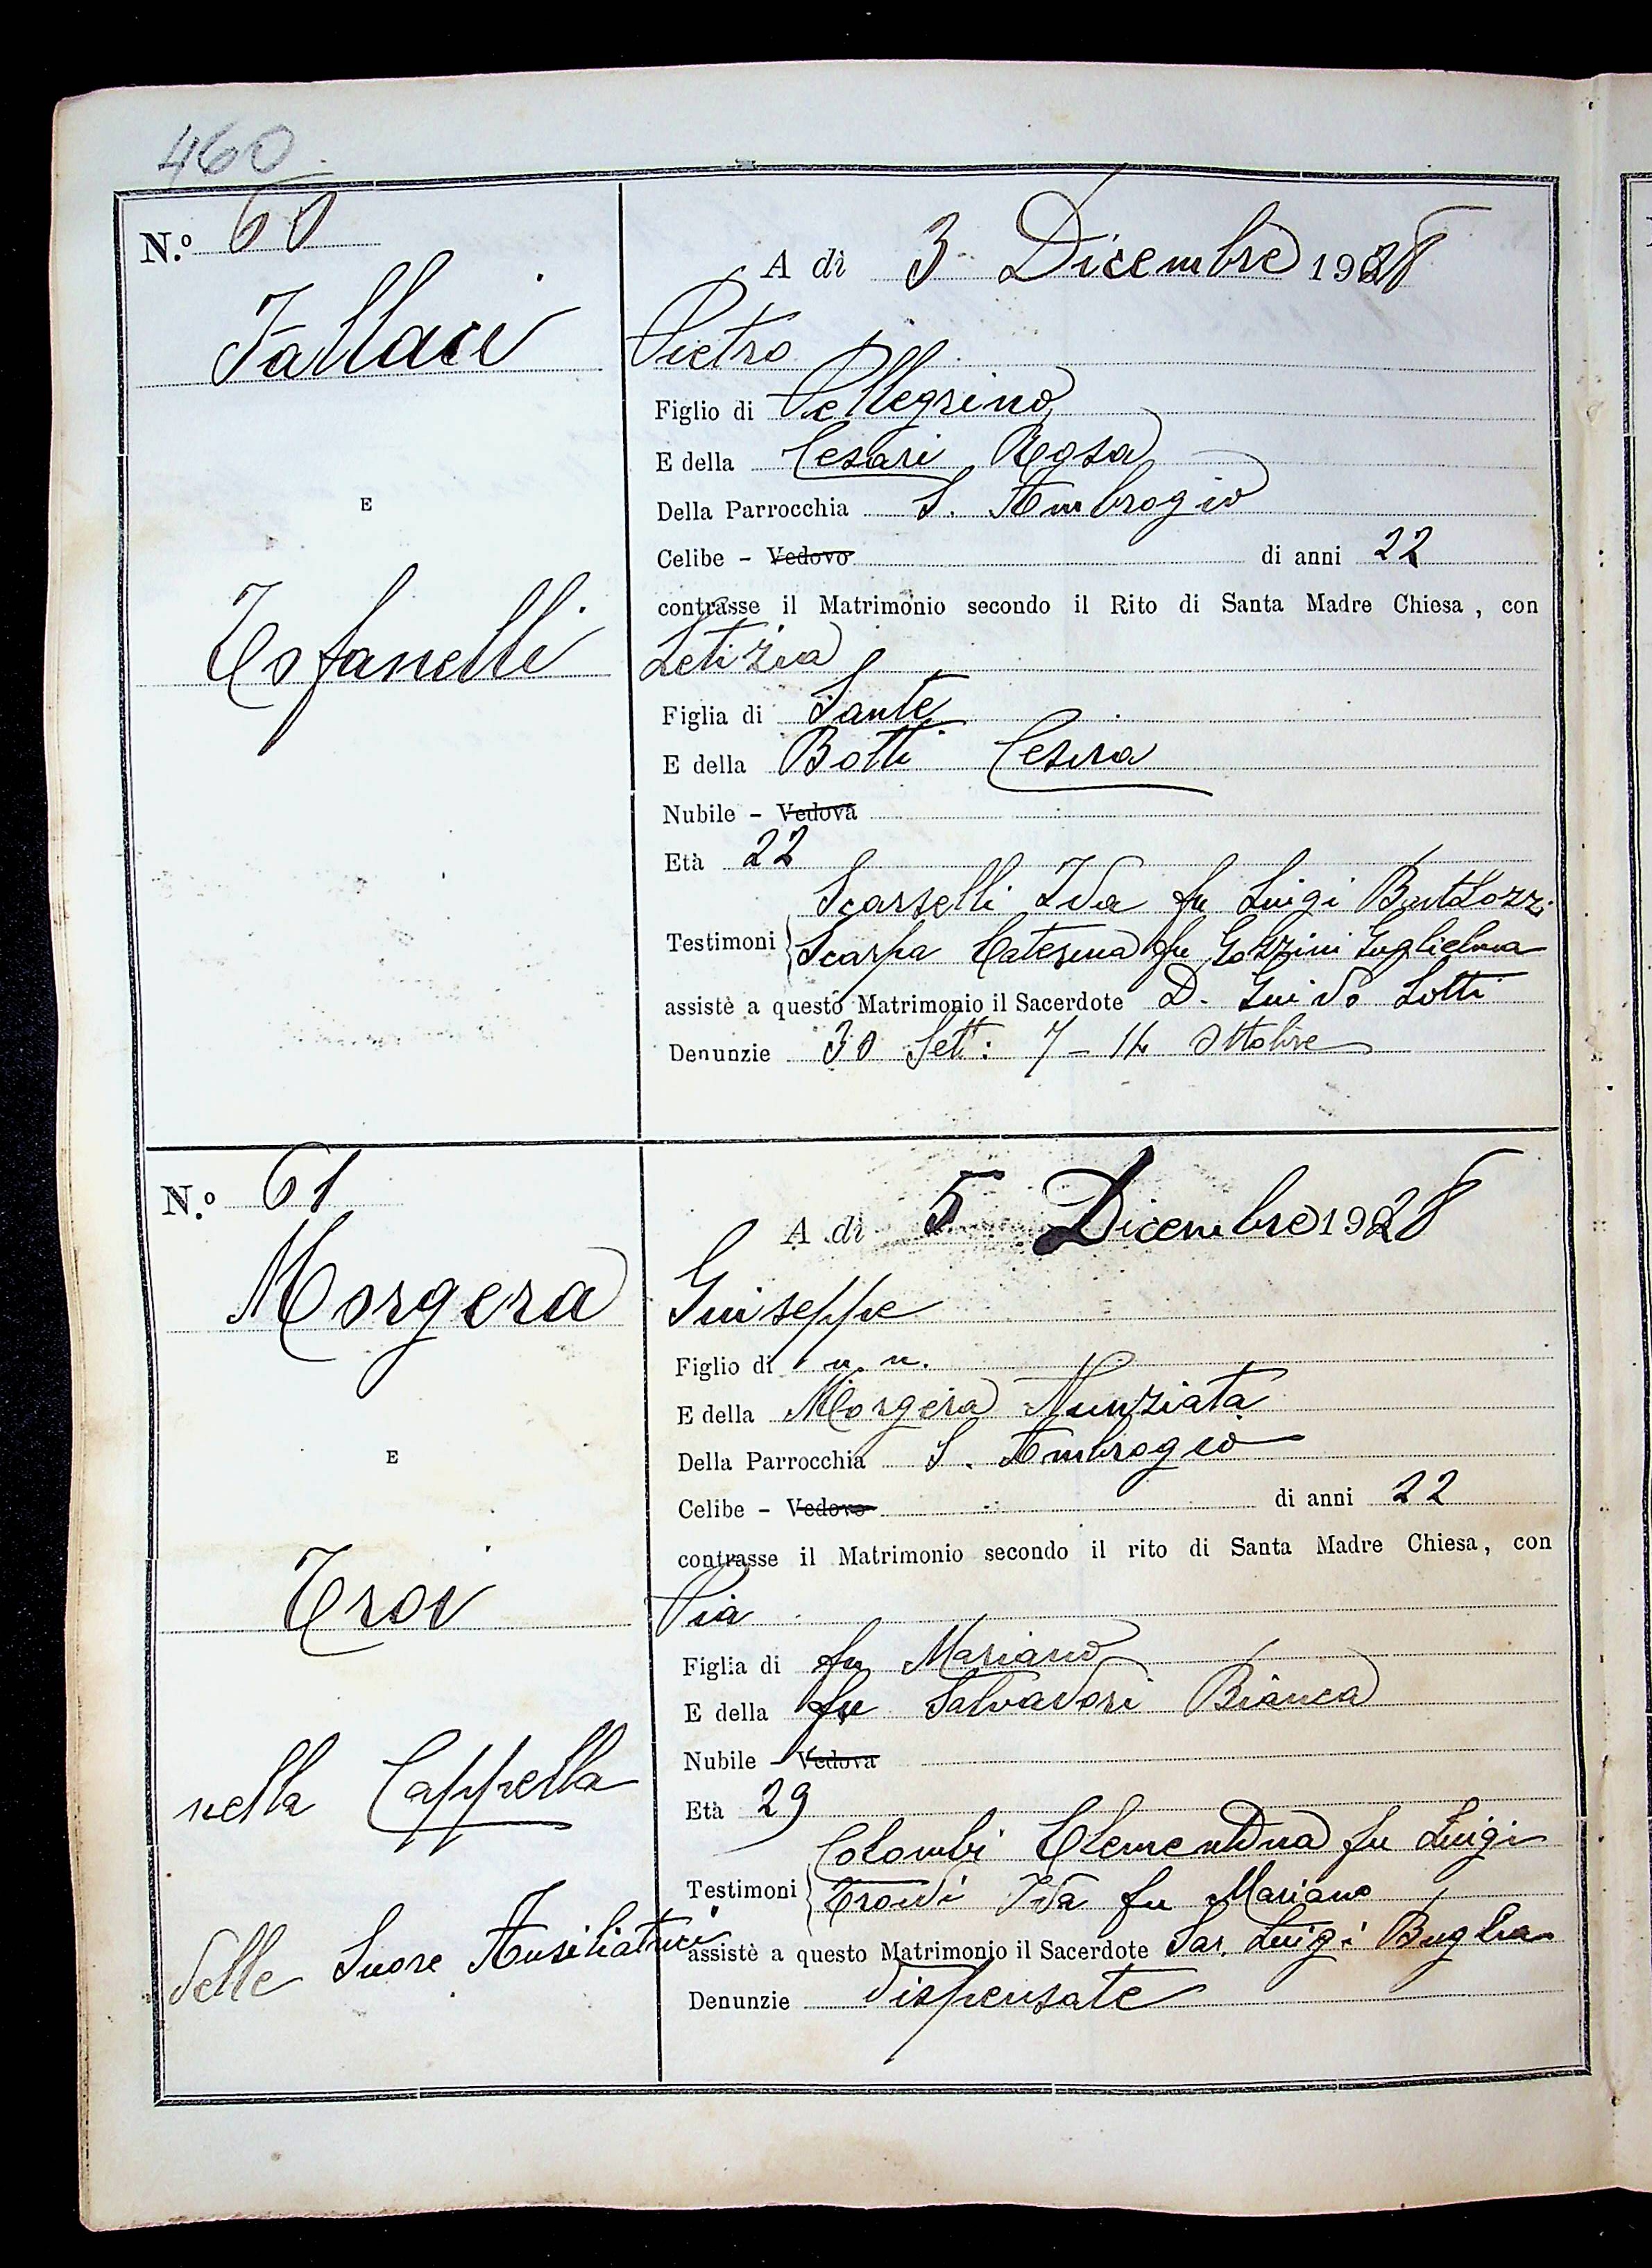 460
N.º 60
A dì 3 Dicembre 1928
Fallaci
Pietro
Figlio di Pellegrino
E della Cesari Rosa
E
Della Parrocchia S. Ambrogio
Celibe - Vedovo di anni 22
contrasse il Matrimonio secondo il Rito di Santa Madre Chiesa, con
Tofanelli
Letizia
Figlia di Sante
E della Botti Cesira
Nubile - Vedova
Età 22
Scarselli Ida fu Luigi
Testimoni Scarpa Caterina fu Gozzini Guglielma
assistè a questo Matrimonio il Sacerdote D. Guido Lotti
Denunzie 30 Sett: 7 - 14 Ottobre
N.º 61
A dì 5 Dicembre 1928
Morgera
Giuseppe
Figlio di n. n.
E della Morgera Nunziata
E
Della Parrocchia S. Ambrogio
Celibe - Vedovo di anni 22
contrasse il Matrimonio secondo il rito di Santa Madre Chiesa, con
Troi
Pia
Figlia di fu Mariano
E della fu Salvadori Bianca
Nubile - Vedova
Età 29
nella Cappella
delle Suore Ausiliatrici
Colombi Clementina fu Luigi
Testimoni Ida fu Mariano
assistè a questo Matrimonio il Sacerdote Luigi Buglia
Denunzie dispensate